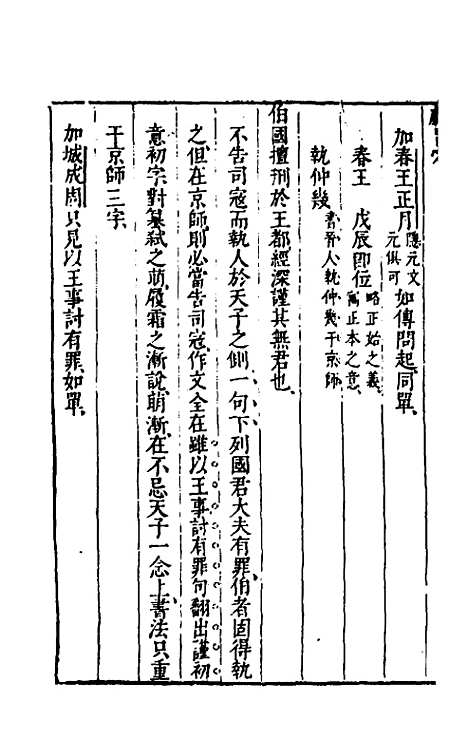 加春王正月應元文元俱可如傳問起同單
春王　戊辰即位略正始之義寓正本之意
執仲幾書晉人執仲幾于京師
伯國擅刑於王都經深謹其無君也
不告司寇而執人於天子之側一句下列國君大夫有罪伯者固得執
之但在京師則必當告司寇作文全在雖以王事討有罪句翻出謹初
意初字對篡弑之萌履霜之漸說萌漸在不忌天子一念上書法只重
于京師三字
加城成周只見以王事討有罪如單